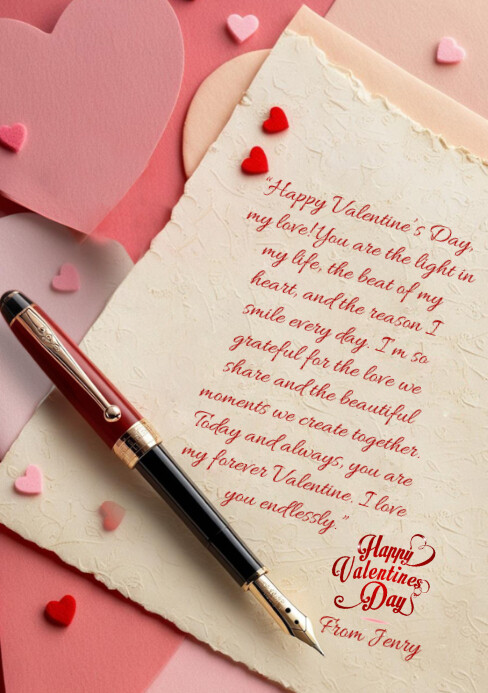 "Happy Valentine's Day,
my love! You are the light in
my life, the beat of my
heart, and the reason I
smile every day. I'm so
grateful for the love we
share and the beautiful
moments we create together.
Today and always, you are
my forever Valentine. I love
you endlessly."
Happy
Valentines
Day
From Jenry